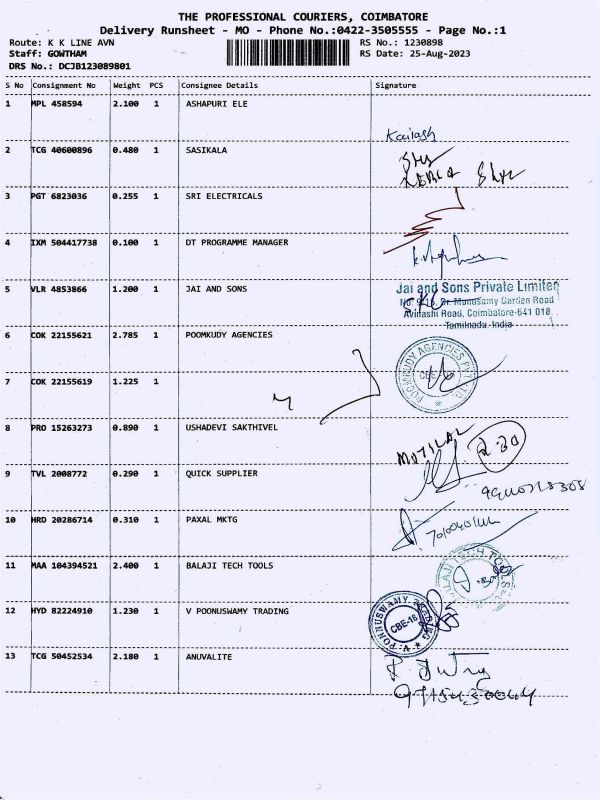 THE PROFESSIONAL COURIERS, COIMBATORE
Delivery Runsheet - MO - Phone No.:0422-3505555 - Page No.:1
Route: K K LINE AVN
RS No.: 1230898
Staff: GOWTHAM
RS Date: 25-Aug-2023
DRS No.: DCJB123089801
S No Consignment No Weight PCS Consignee Details Signature
1 MPL 458594 2.100 1 ASHAPURI ELE
Kailash
2 TCG 40600896 0.480 1 SASIKALA
3 PGT 6823036 0.255 1 SRI ELECTRICALS
4 IXM 504417738 0.100 1 DT PROGRAMME MANAGER
5 VLR 4853866 1.200 1 JAI AND SONS
Jai and Sons Private Limited
No: 9-16, Dr. Munusamy Garden Road
Avinashi Road, Coimbatore-641 018.
Tamilnadu. India
6 COK 22155621 2.785 1 POOMKUDY AGENCIES
POOMKUDY AGENCIES PVT LTD.
CBE
7 COK 22155619 1.225 1
8 PRO 15263273 0.890 1 USHADEVI SAKTHIVEL
MOTILAL
2.30
9 TVL 2008772 0.290 1 QUICK SUPPLIER
10 HRD 20286714 0.310 1 PAXAL MKTG
11 MAA 104394521 2.400 1 BALAJI TECH TOOLS
BALAJI TECH TOOLS
12 HYD 82224910 1.230 1 V POONUSWAMY TRADING
V. PONNUSWAMY TRADING
CBE-18
13 TCG 50452534 2.180 1 ANUVALITE